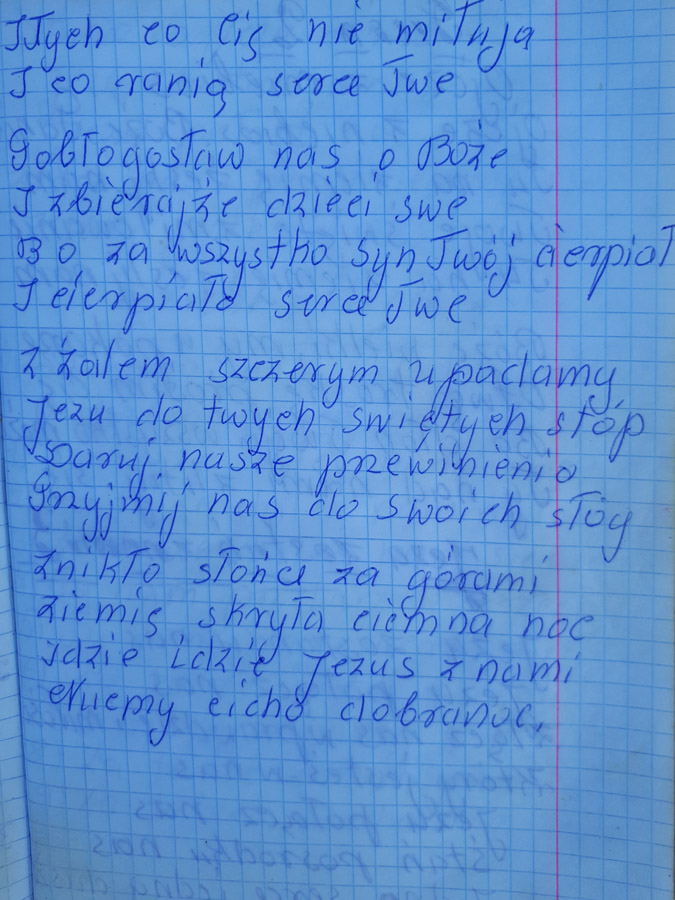 Tych co Cię nie miłują
I co ranią serce Twe
Pobłogosław nas o Boże
I zbierajże dzieci swe
Bo za wszystko Syn Twój cierpiał
I cierpiało serce Twe
Z żalem szczerym upadamy
Jezu do twych swiętych stóp
Daruj nasze przewinienia
Przyjmij nas do swoich słóg
Znikło słońce za górami
Ziemię skryła ciemna noc
Idzie idzie Jezus z nami
cicho dobranoc.